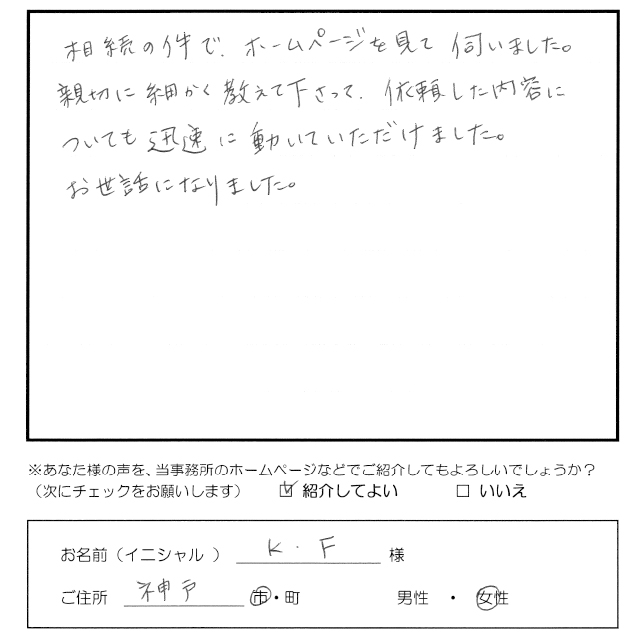 相続の件で、ホームページを見て伺いました。
親切に細かく教えて下さって、依頼した内容に
ついても迅速に動いていただけました。
お世話になりました。
※あなた様の声を、当事務所のホームページなどでご紹介してもよろしいでしょうか？
（次にチェックをお願いします） ☑ 紹介してよい □ いいえ
お名前（イニシャル ） K．F 様
ご住所 神戸 市・町 男性 ・ 女性